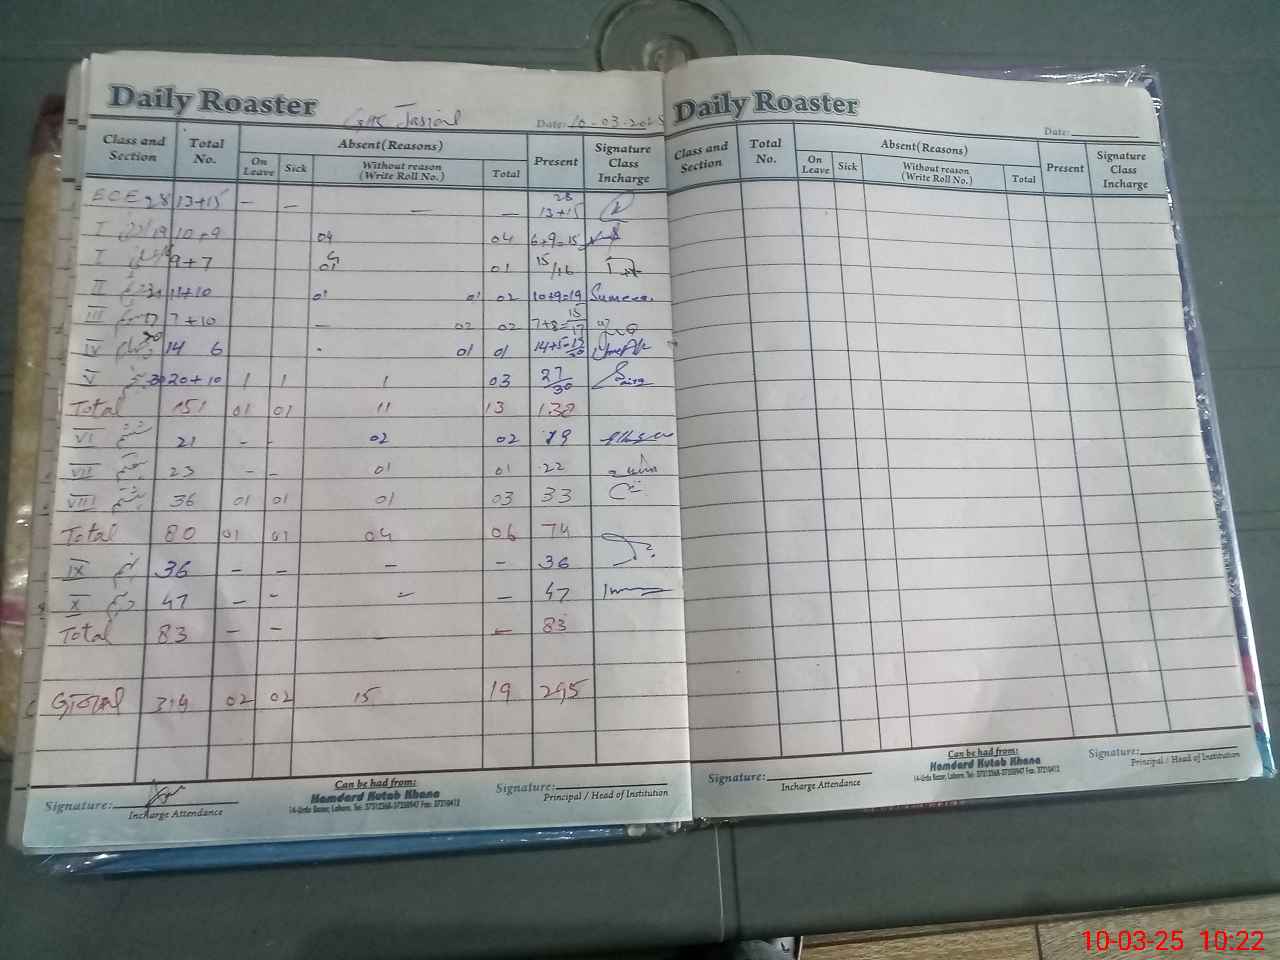 Daily Roaster
Date: 10-03-2025
Class and Section Total No. Absent(Reasons) Present Signature Class Incharge
On Leave Sick Without reason (Write Roll No.) Total
ECE 28 13+15 - - - - 28 13+15
I 19 10+9 04 04 6+9=15
I 9+7 01 01 15/16
II 11+10 01 01 02 10+9=19 Sumera
III 17 7+10 - 02 02 7+8=15 17
IV 20 14 6 01 01
V 30 20+10 1 1 1 03 27/30
Total 151 01 01 11 13 138
VI ششم 21 - - 02 02 19
VII ہفتم 23 - - 01 01 22
VIII ہشتم 36 01 01 01 03 33
Total 80 01 01 04 06 74
IX نہم 36 - - - - 36
X دہم 47 - - - - 47
Total 83 - - - - 83
G,Total 314 02 02 15 19 295
Signature:
Incharge Attendance
Can be had from:
Hamdard Kutab Khana
14-Urdu Bazar, Lahore.
Signature:
Principal / Head of Institution
Daily Roaster
Date:
Class and Section Total No. Absent(Reasons) Present Signature Class Incharge
On Leave Sick Without reason (Write Roll No.) Total
Signature:
Incharge Attendance
Can be had from:
Hamdard Kutab Khana
14-Urdu Bazar, Lahore.
Signature:
Principal / Head of Institution
10-03-25 10:22